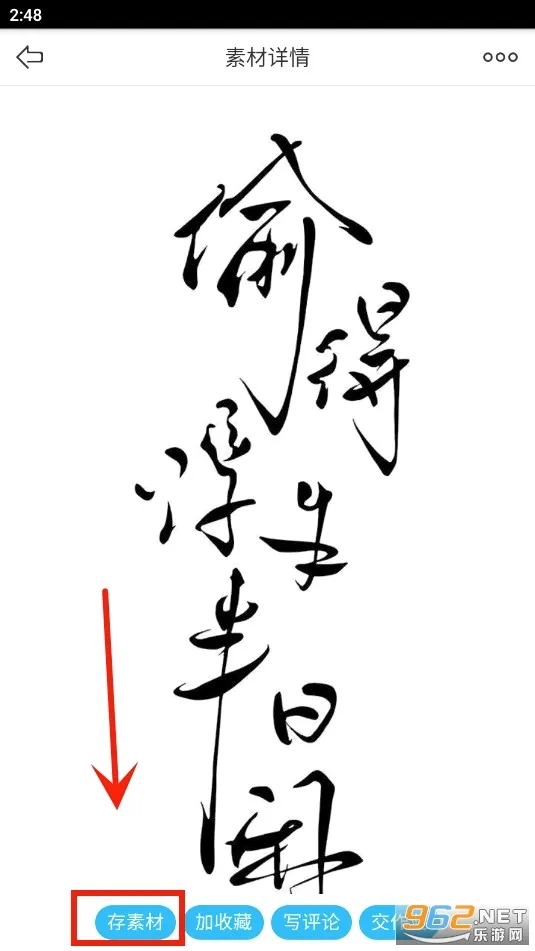 2:48
素材详情
偷得浮生半日闲
存素材
加收藏
写评论
交作
962.NET
乐游网